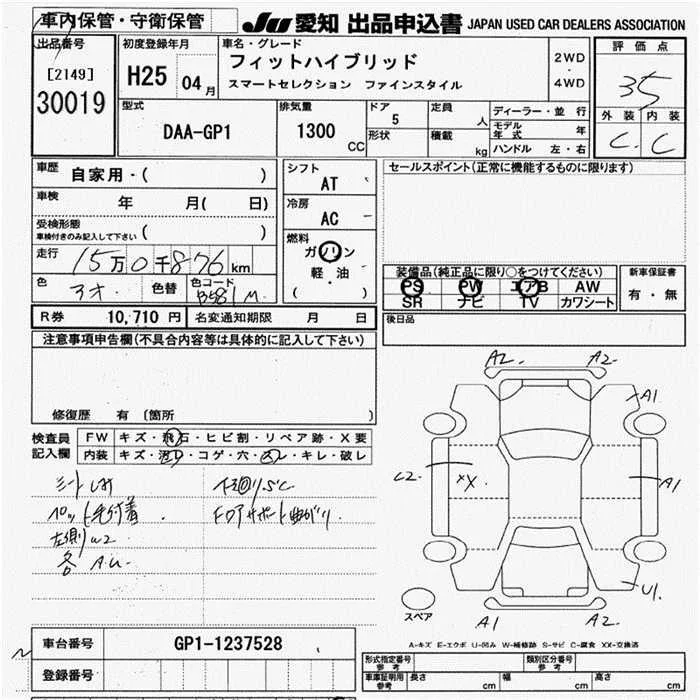 車内保管・守衛保管
JU 愛知 出品申込書 JAPAN USED CAR DEALERS ASSOCIATION
出品番号
[2149]
30019
初度登録年月
H25 04月
車名・グレード
フィットハイブリッド
スマートセレクション ファインスタイル
2WD
・
4WD
評価点
35
外装 内装
C C
型式
DAA-GP1
排気量
1300 CC
ドア
5
形状
定員
人
積載
kg
ディーラー・並行
モデル年式 年
ハンドル 左・右
車歴
自家用・( )
車検
年 月( 日)
受検形態
車検付きのみ記入して下さい ( )
走行
15万0千876km
色
色替
色コード
B581M
シフト
AT
冷房
AC
燃料
ガソリン
軽・油
( )
セールスポイント(正常に機能するものに限ります)
装備品(純正品に限り○をつけてください)
PS PW エアB AW
SR ナビ TV カワシート
新車保証書
有・無
後日品
R券 10,710 円 名変通知期限 月 日
注意事項申告欄(不具合内容等は具体的に記入して下さい)
修復歴 有 〔箇所 〕
検査員
記入欄
FW キズ・飛石・ヒビ割・リペア跡・X要
内装 キズ・汚レ・コゲ・穴・スレ・キレ・破レ
シート
ペット毛付着
左側
各 A.U
下廻りSC
FDアサポート曲がり
A2 A2
A1
C2
XX
A1
U1
A1 A2
スペア
A-キズ E-エクボ U-凹み W-補修跡 S-サビ C-腐食 XX-交換済
車台番号 GP1-1237528
登録番号
形式指定番号
参考
類別区分番号
参考
車庫証明用
参考
長さ cm 幅 cm 高さ cm